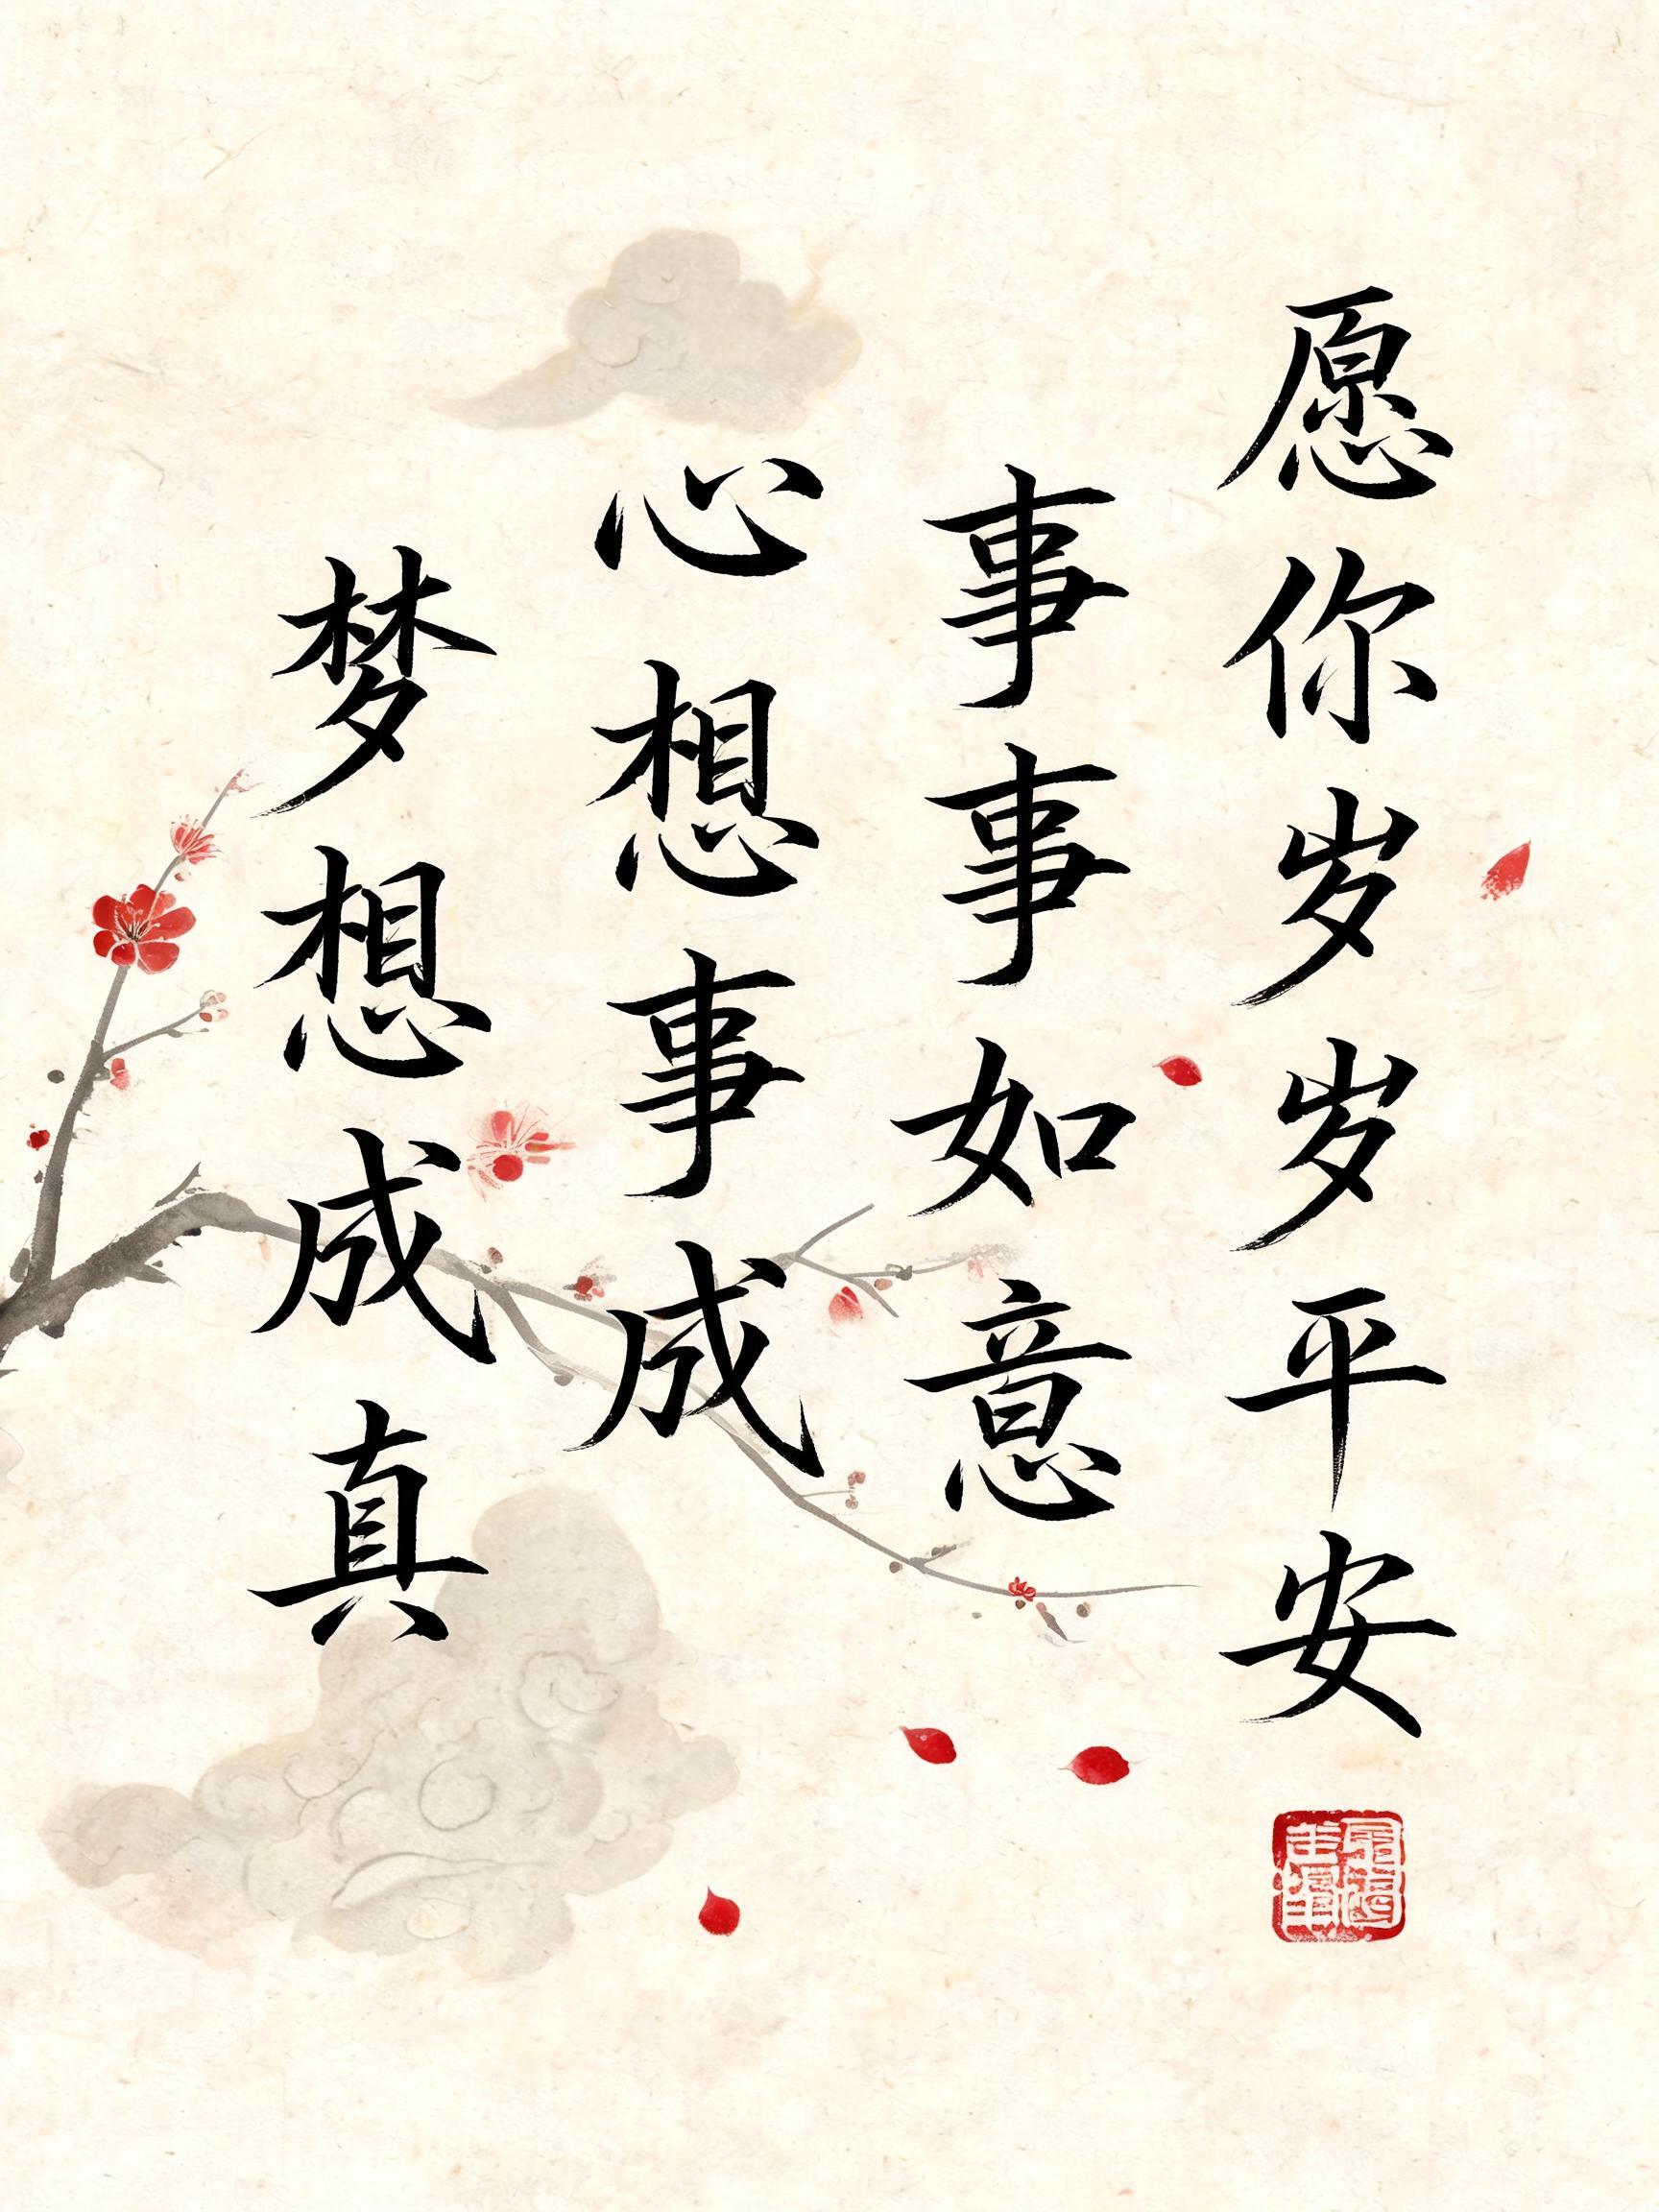 愿你岁岁平安
事事如意
心想事成
梦想成真